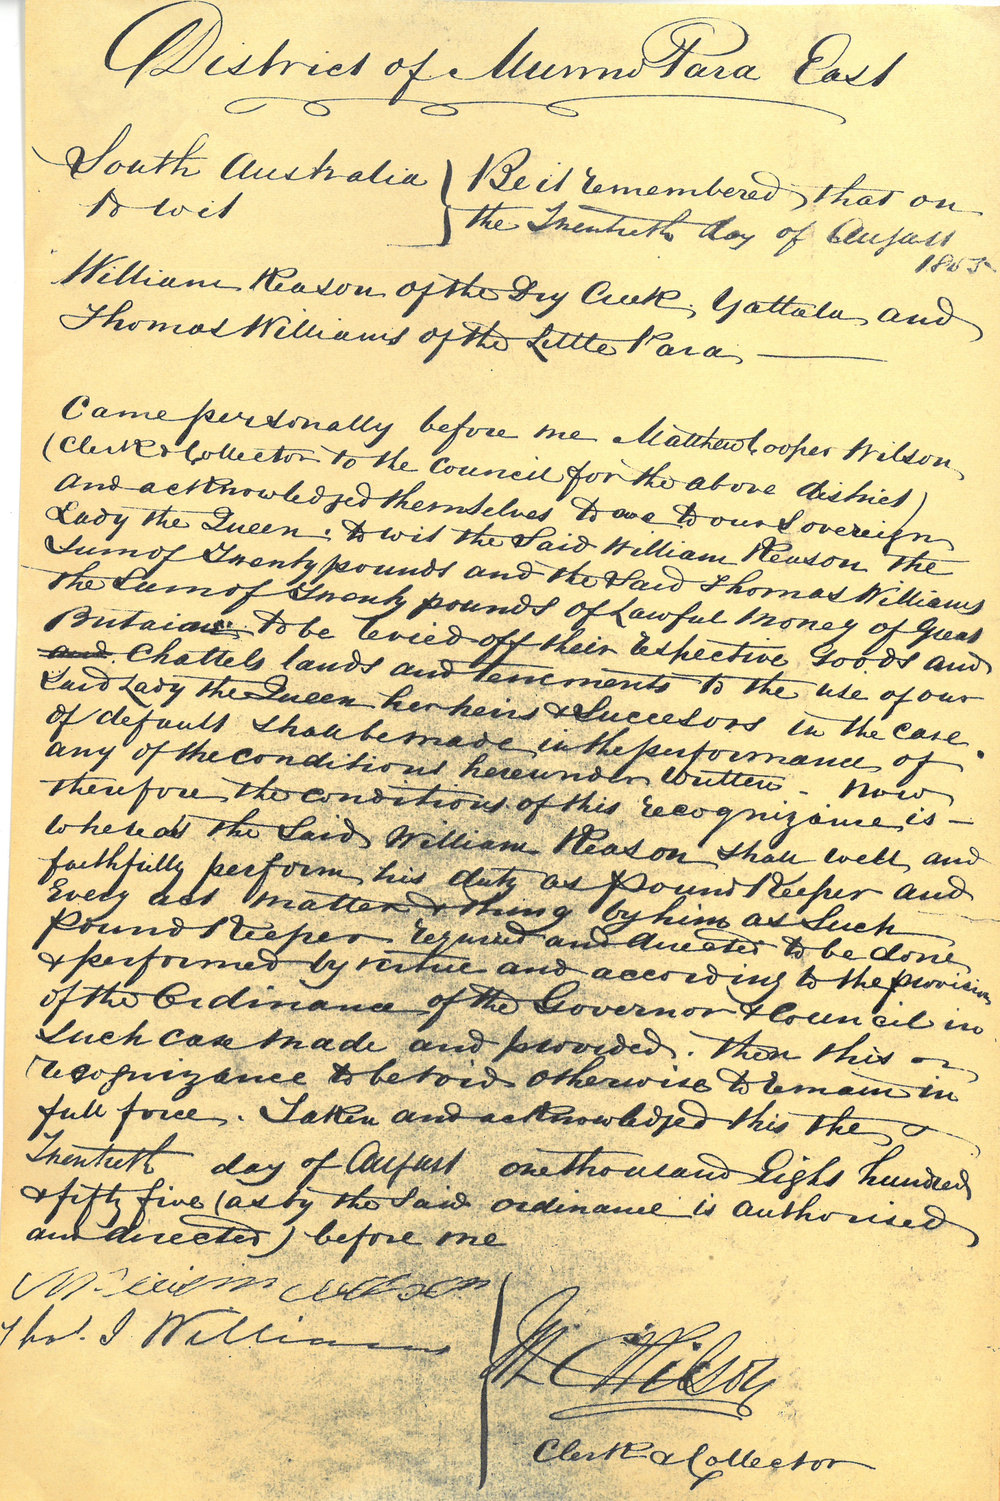 District of Munno Para East
South Australia
to wit
Be it remembered that on
the Twentieth day of August
1855
William Reason of the Dry Creek, Yattala and
Thomas Williams of the Little Para
Came personally before me Matthew Cooper Wilson
(Clerk & Collector to the Council for the above district)
and acknowledged themselves to owe to our Sovereign
Lady the Queen: to wit the Said William Reason the
Sum of Twenty pounds and the Said Thomas Williams
the Sum of Twenty pounds of Lawful Money of Great
Britain to be levied off their respective Goods and
and Chattels lands and tenements to the use of our
Said Lady the Queen her heirs & Succesors in the case
of default shall be made in the performance of
any of the conditions hereunder written - Now
therefore the conditions of this recognizance is -
whereas the Said William Reason shall well and
faithfully perform his duty as Pound Keeper and
Every act matter & thing by him as Such
Pound Keeper required and directed to be done
& performed by virtue and according to the provision
of the Ordinance of the Governor & Council in
Such case made and provided. then this
recognizance to be void otherwise to remain in
full force. Taken and acknowledged this the
Twentieth day of August one thousand Eight hundred
& fifty five (as by the Said ordinance is authorised
and directed) before me
William Reason
Thos. J Williams
M C Wilson
Clerk & Collector